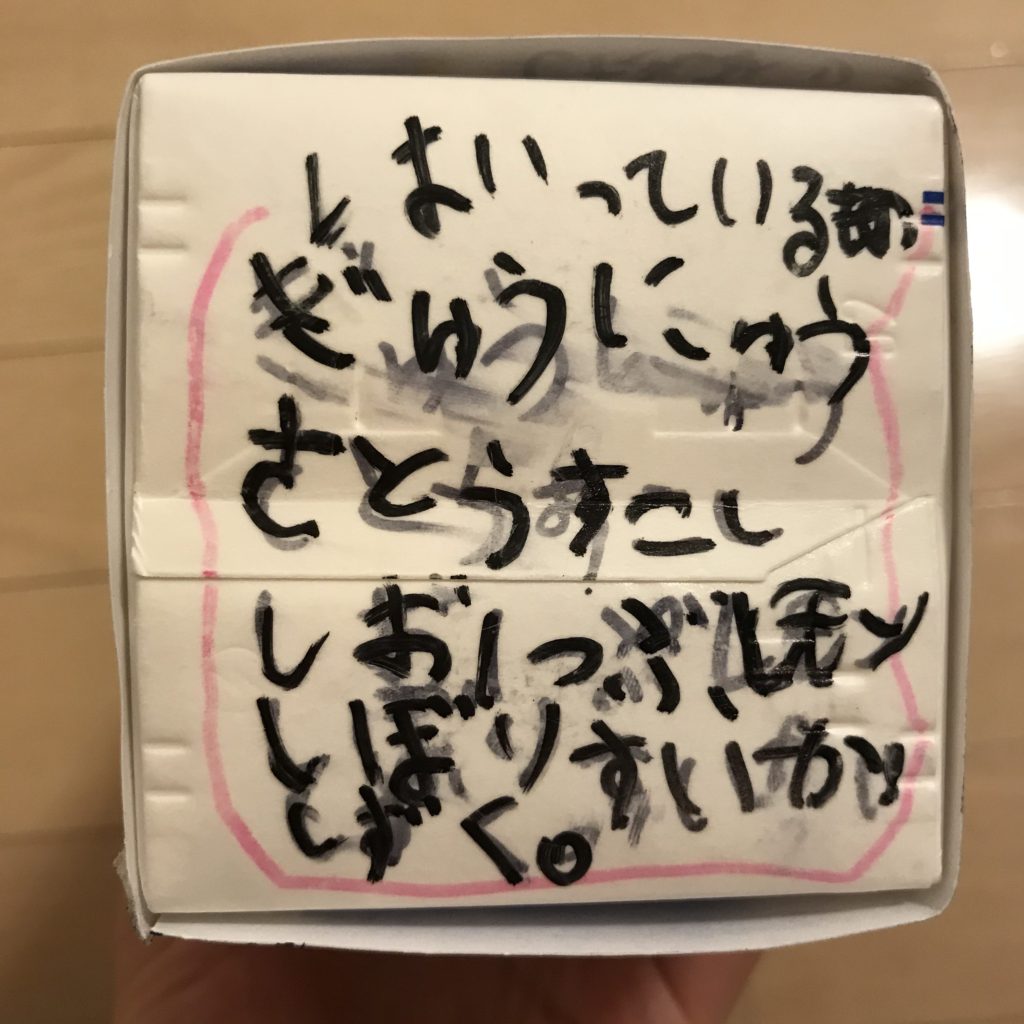 ↓はいっている
ぎゅうにゅう
さとうすこし
しお1つぶ、レモン
しぼりすいか
しずく。